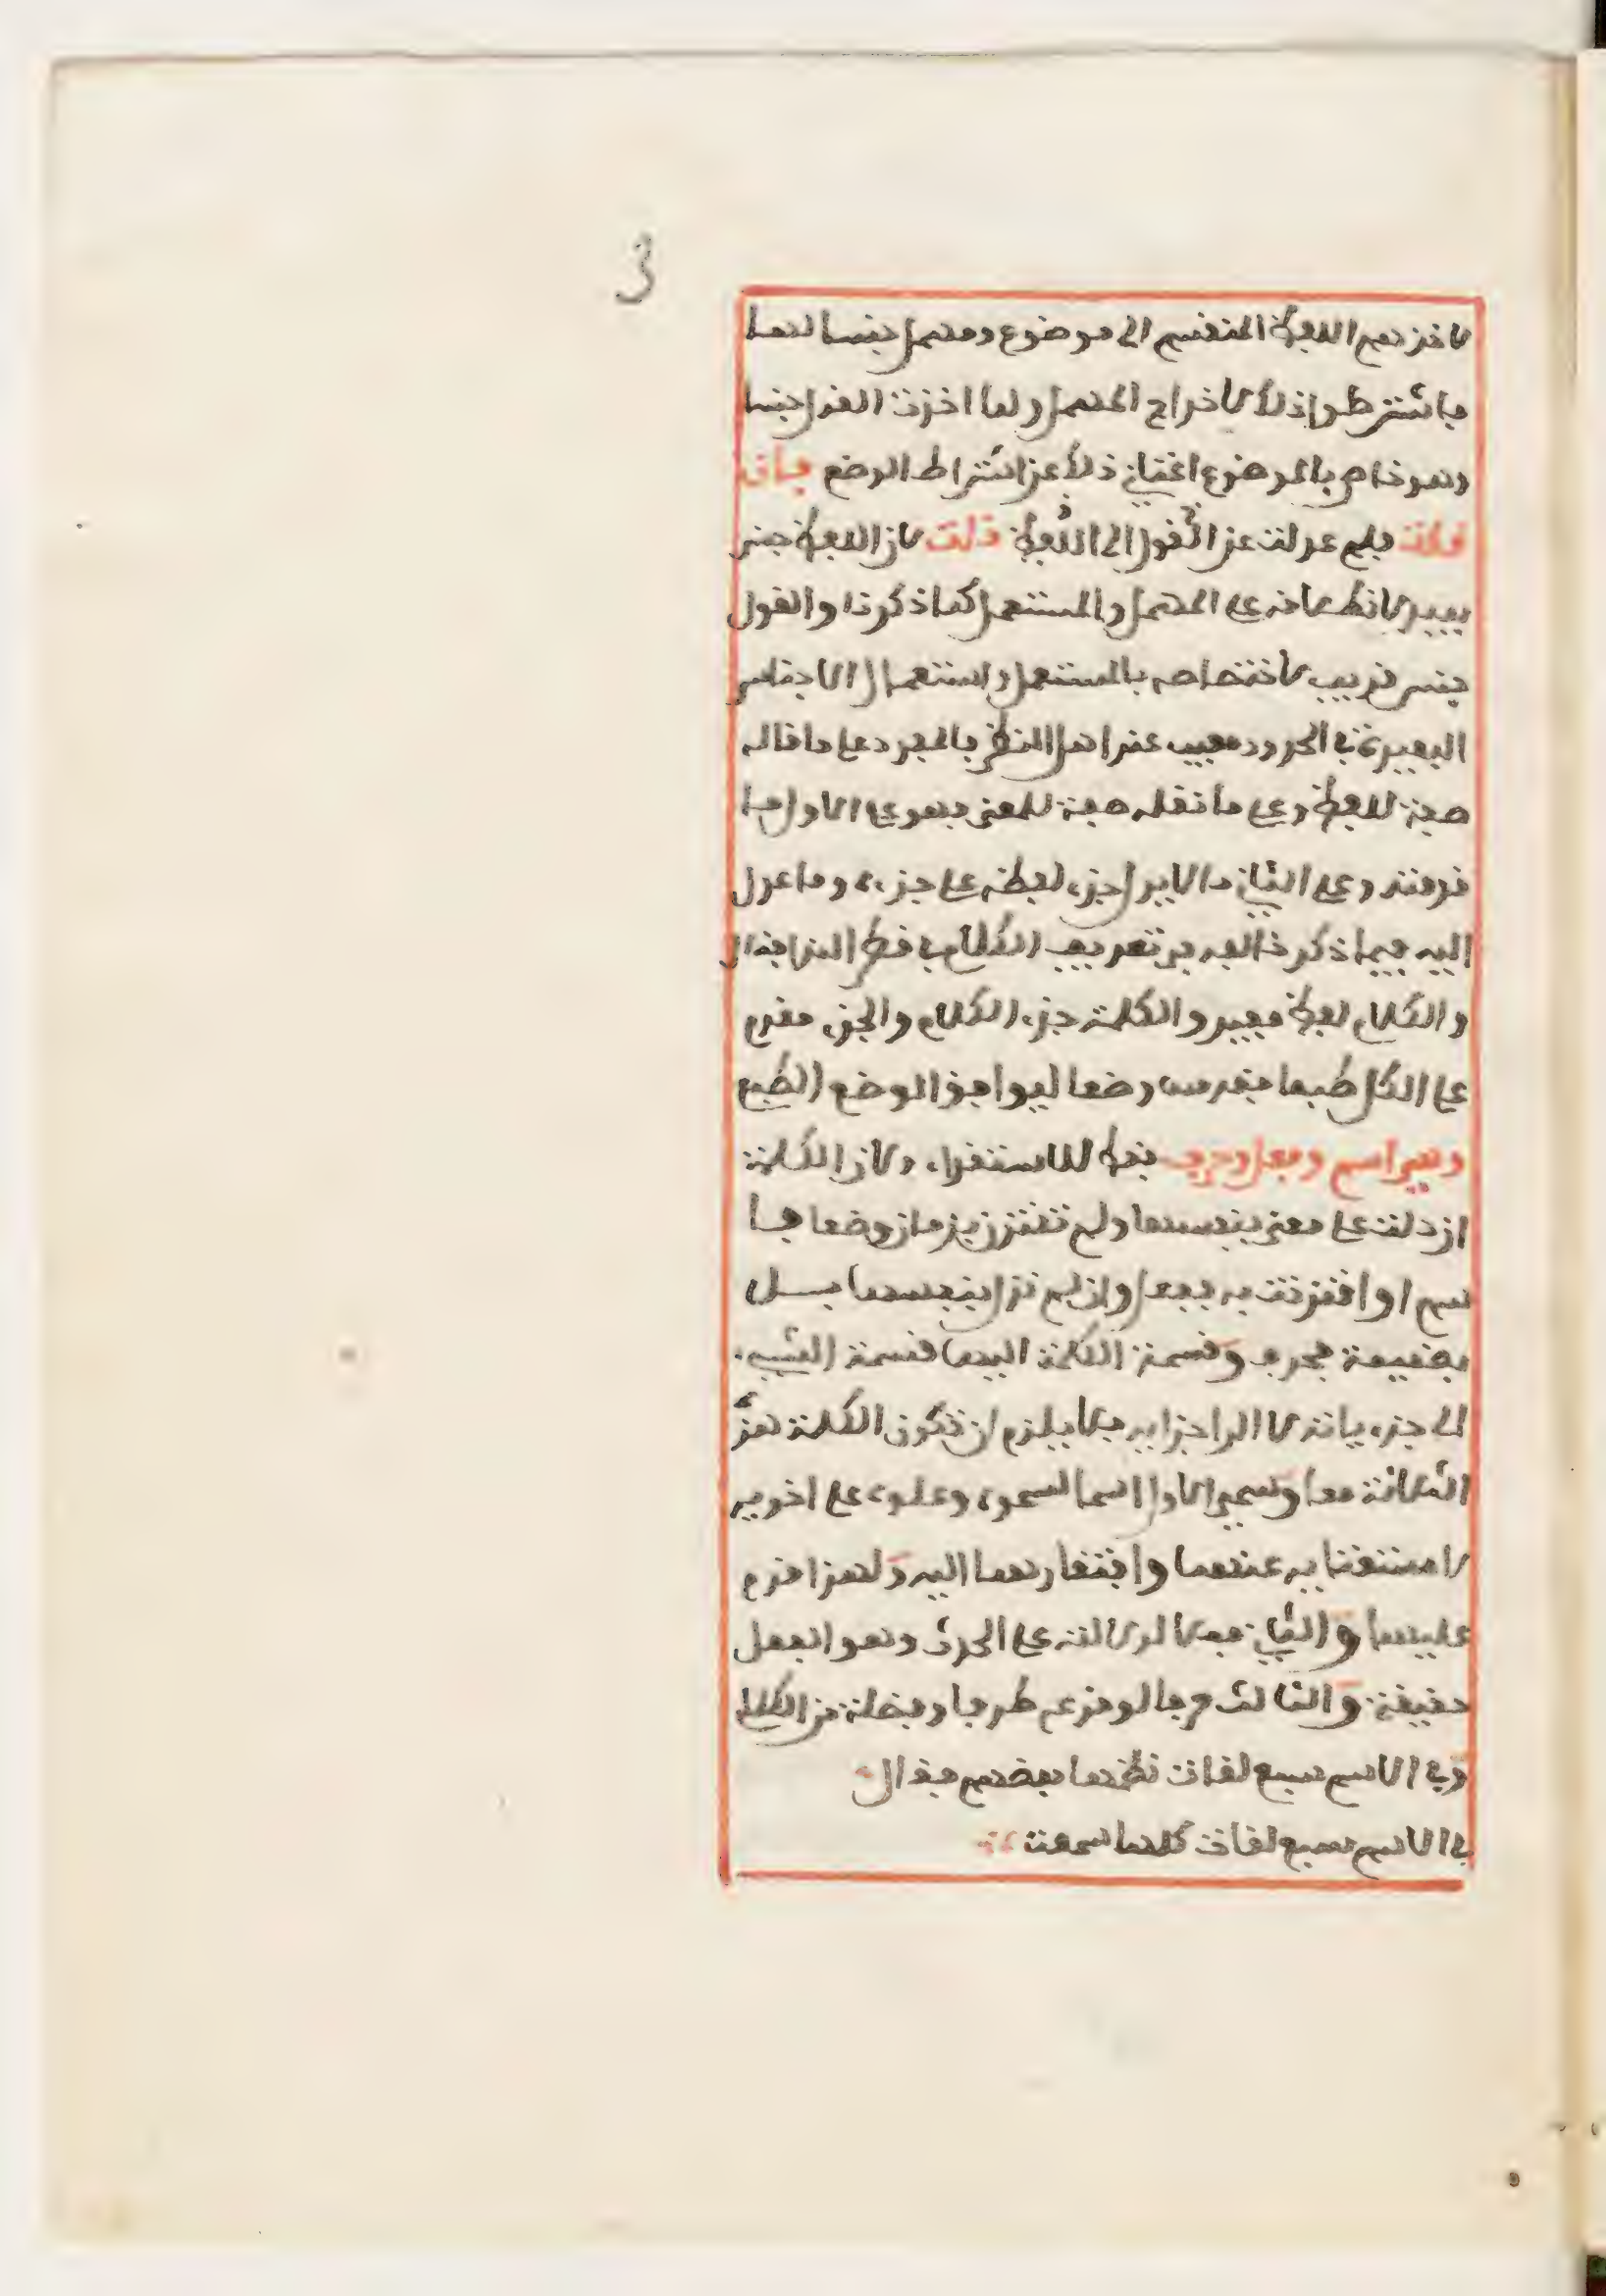 3
لاخذهم اللفظ المنقسم الى موضوع ومهمل جنسا لها
فاشترطوا ذلك لاخراج المهمل ولما اخذت القول جنسا
وهو خاص بالموضوع اغناني ذلك عن اشتراط الوضع فان
قلت فلم عدلت عن القول الى اللفظ قلت لان اللفظ جنس
بعيد لانطلاقه على المهمل والمستعمل كما ذكرنا والقول
جنس قريب لاختصاصه بالمستعمل واستعمال الاجناس
البعيدة في الحدود معيب عند اهل النظر فالمفرد على ما قاله
صفة للفظ وعلى ما نقله صفة للمعنى وهو على الاول ما
قدمته وعلى الثاني ما لا يدل جزء لفظه على جزءه وما عدل
اليه فيما ذكر خالفه في تعريف الكلام في قطر الندا فقال
والكلام لفظ مفيد والكلمة جزء الكلام والجزء مقدم
على الكل طبعا فقدمت وضعا ليوافق الوضع الطبع
وهي اسم وفعل وحرف فقط للاستقراء ولان الكلمة
ان دلت على معنى بنفسها ولم تقترن بزمان وضعا فا
سم او اقترنت به ففعل وان لم تدل بنفسها بل
بضميمة فحرف وقسمة الكلمة اليها قسمة الشيء
الى جزءياته لا الى اجزايه فلا يلزم ان تكون الكلمة هذه
الثلاثة معا وسمي الاول اسما لسموه وعلوه على اخويه
لاستغنايه عنهما وافتقارهما اليه ولهذا قدم
عليهما والثاني فعلا لدلالته على الحدث وهو الفعل
حقيقة والثالث حرفا لوقوعه طرفا وفضلة من الكلام
وفي الاسم سبع لغات نظمها بعضهم فقال
في الاسم سبع لغات كلها سمعت